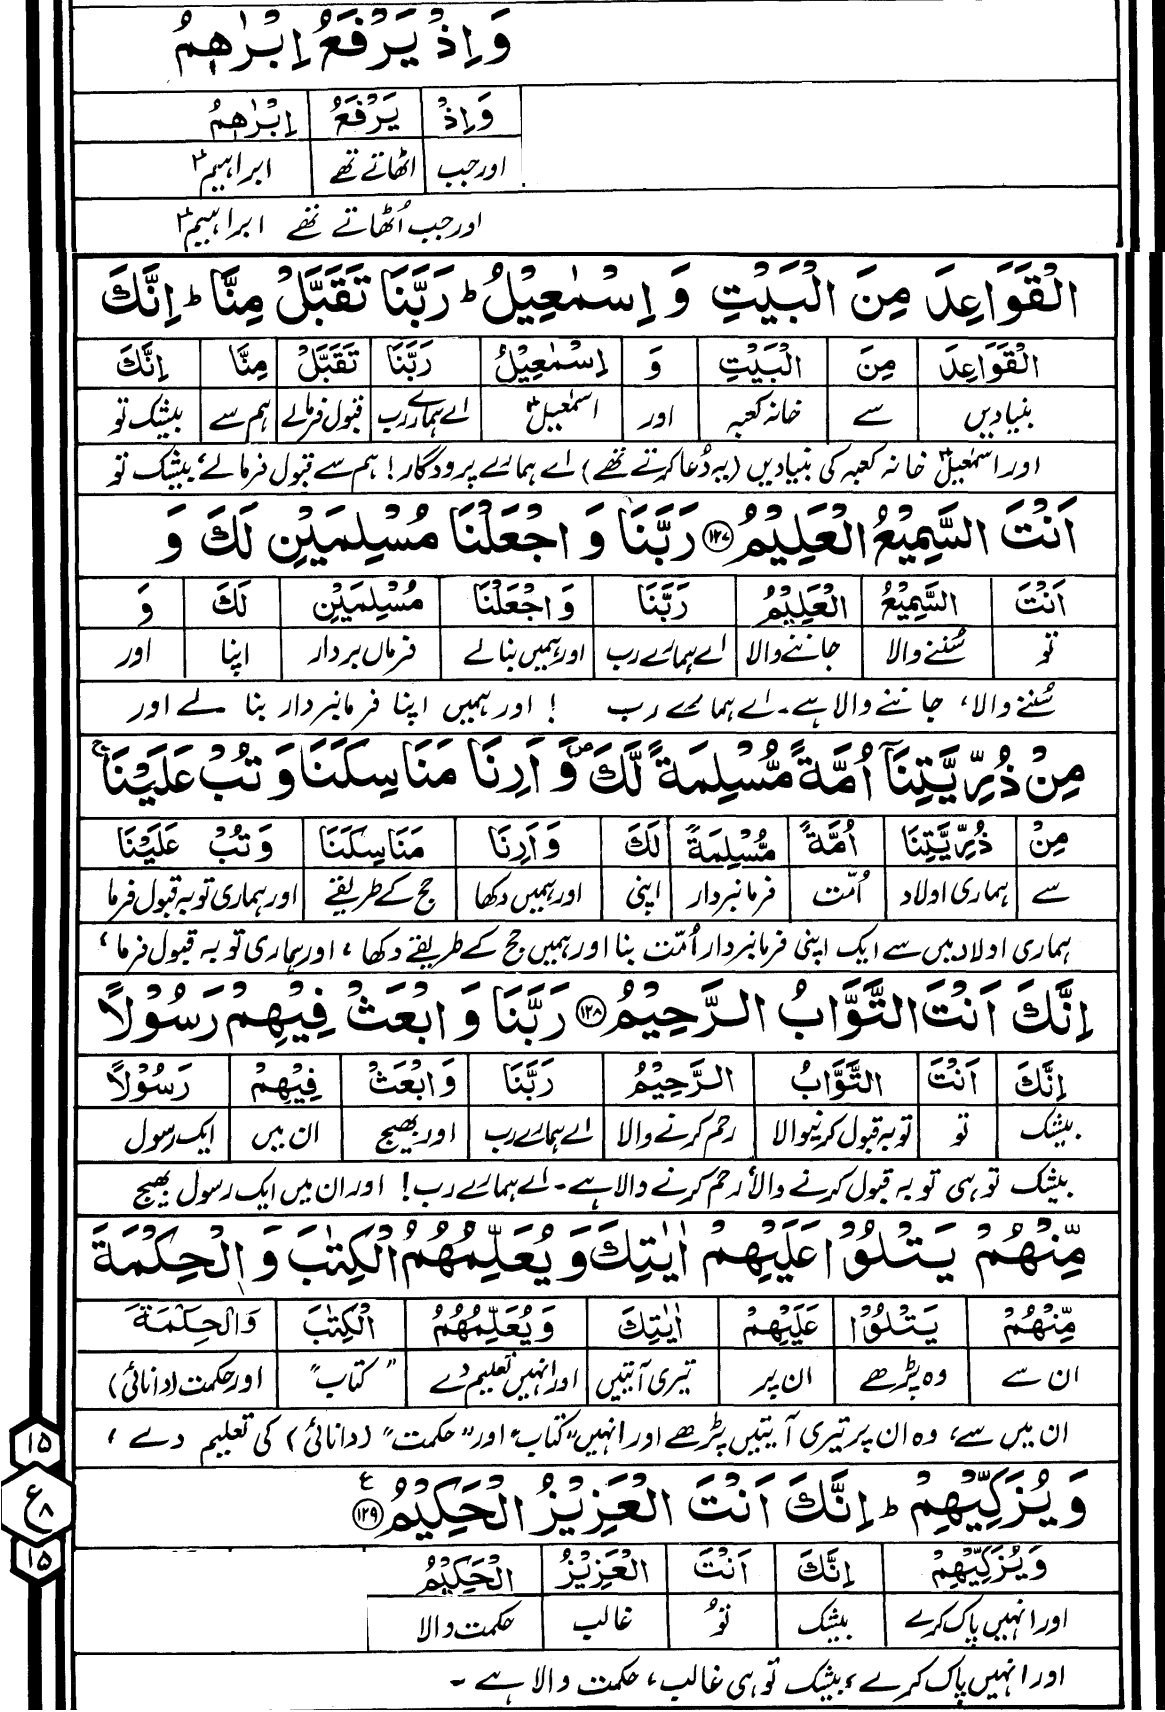 وَاِذْ يَرْفَعُ اِبْرٰهٖمُ
وَاِذْ يَرْفَعُ اِبْرٰهٖمُ
اور جب اٹھاتے تھے ابراہیمؑ
اور جب اُٹھاتے تھے ابراہیمؑ
الْقَوَاعِدَ مِنَ الْبَيْتِ وَ اِسْمٰعِيْلُ ؕ رَبَّنَا تَقَبَّلْ مِنَّا ؕ اِنَّكَ
الْقَوَاعِدَ مِنَ الْبَيْتِ وَ اِسْمٰعِيْلُ رَبَّنَا تَقَبَّلْ مِنَّا اِنَّكَ
بنیادیں سے خانہ کعبہ اور اسمٰعیلؑ اے ہمارے رب قبول فرمالے ہم سے بیشک تو
اور اسمٰعیلؑ خانہ کعبہ کی بنیادیں (یہ دُعا کرتے تھے) اے ہمارے پرودگار! ہم سے قبول فرمالے، بیشک تو
اَنْتَ السَّمِيْعُ الْعَلِيْمُ ۝۱۲۷ رَبَّنَا وَ اجْعَلْنَا مُسْلِمَيْنِ لَكَ وَ
اَنْتَ السَّمِيْعُ الْعَلِيْمُ رَبَّنَا وَاجْعَلْنَا مُسْلِمَيْنِ لَكَ وَ
تو سُننے والا جاننے والا اے ہمارے رب اور ہمیں بنالے فرماں بردار اپنا اور
سُننے والا، جاننے والا ہے۔ اے ہمارے رب ! اور ہمیں اپنا فرمانبردار بنا لے اور
مِنْ ذُرِّيَّتِنَاۤ اُمَّةً مُّسْلِمَةً لَّكَ ۪ وَ اَرِنَا مَنَاسِكَنَا وَ تُبْ عَلَيْنَا ۚ
مِنْ ذُرِّيَّتِنَا اُمَّةً مُّسْلِمَةً لَكَ وَاَرِنَا مَنَاسِكَنَا وَتُبْ عَلَيْنَا
سے ہماری اولاد اُمّت فرمانبردار اپنی اور ہمیں دکھا حج کے طریقے اور ہماری توبہ قبول فرما
ہماری اولاد میں سے ایک اپنی فرمانبردار اُمّت بنا اور ہمیں حج کے طریقے دکھا، اور ہماری توبہ قبول فرما،
اِنَّكَ اَنْتَ التَّوَّابُ الرَّحِيْمُ ۝۱۲۸ رَبَّنَا وَ ابْعَثْ فِيْهِمْ رَسُوْلًا
اِنَّكَ اَنْتَ التَّوَّابُ الرَّحِيْمُ رَبَّنَا وَابْعَثْ فِيْهِمْ رَسُوْلًا
بیشک تو توبہ قبول کرنیوالا رحم کرنے والا اے ہمارے رب اور بھیج ان میں ایک رسول
بیشک تو ہی توبہ قبول کرنے والا، رحم کرنے والا ہے۔ اے ہمارے رب! اور ان میں ایک رسول بھیج
مِّنْهُمْ يَتْلُوْا عَلَيْهِمْ اٰيٰتِكَ وَ يُعَلِّمُهُمُ الْكِتٰبَ وَ الْحِكْمَةَ
مِّنْهُمْ يَتْلُوْا عَلَيْهِمْ اٰيٰتِكَ وَيُعَلِّمُهُمُ الْكِتٰبَ وَالْحِكْمَةَ
ان سے وہ پڑھے ان پر تیری آیتیں اور انہیں تعلیم دے "کتاب" اور حکمت (دانائی)
ان میں سے، وہ ان پر تیری آیتیں پڑھے اور انہیں "کتاب" اور "حکمت" (دانائی) کی تعلیم دے،
وَ يُزَكِّيْهِمْ ؕ اِنَّكَ اَنْتَ الْعَزِيْزُ الْحَكِيْمُ ۝۱۲۹ ع
وَيُزَكِّيْهِمْ اِنَّكَ اَنْتَ الْعَزِيْزُ الْحَكِيْمُ
اور انہیں پاک کرے بیشک تُو غالب حکمت والا
اور انہیں پاک کرے، بیشک تو ہی غالب، حکمت والا ہے ۔
۱۵
ع ۸
۱۵